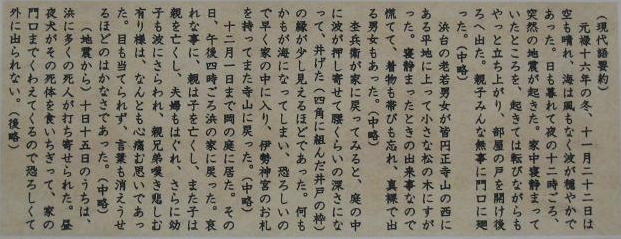 (現代語要約)
元禄十六年の冬、十一月二十二日は
空も晴れ、海は風もなく波が穏やかで
あった。日も暮れて夜の十二時ごろ、
突然の地震が起きた。家中寝静まって
いたところを、起きては転びながらも
やっと立ち上がり、部屋の戸を開け後
ろへ出た。親子みんな無事に門口に廻
った。(中略)
浜台の老若男女が皆円正寺山の西に
ある平地に上って小さな松の木にすが
った。寝静まったときの出来事なので
慌てて、着物も帯びも忘れ、真裸で出
る男女もあった。(中略)
杢兵衛が家に戻ってみると、庭の中
に波が押し寄せて腰くらいの深さにな
って、井げた(四角に組んだ井戸の枠)
の縁が少し見えるほどであった。何も
かもが海になってしまい、恐ろしいの
で早く家の中に入り、伊勢神宮のお札
を持ってまた寺山に戻った。(中略)
十二月一日まで岡の庭に居た。その
日、午後四時ごろ浜の家に戻った。哀
れな事に、親は子を亡くし、また子は
親を亡くし、夫婦もはぐれ、さらに幼
子も波にさらわれ、親兄弟嘆き悲しむ
有り様は、なんとも心痛む思いであっ
た。目も当てられず、言葉も消えうせ
るほどのはかなさであった。(中略)
(地震から)十日十五日のうちは、
浜に多くの死人が打ち寄せられた。昼
夜犬がその死体を食いちぎって、家の
門口までくわえてくるので恐ろしくて
外に出られない。(後略)